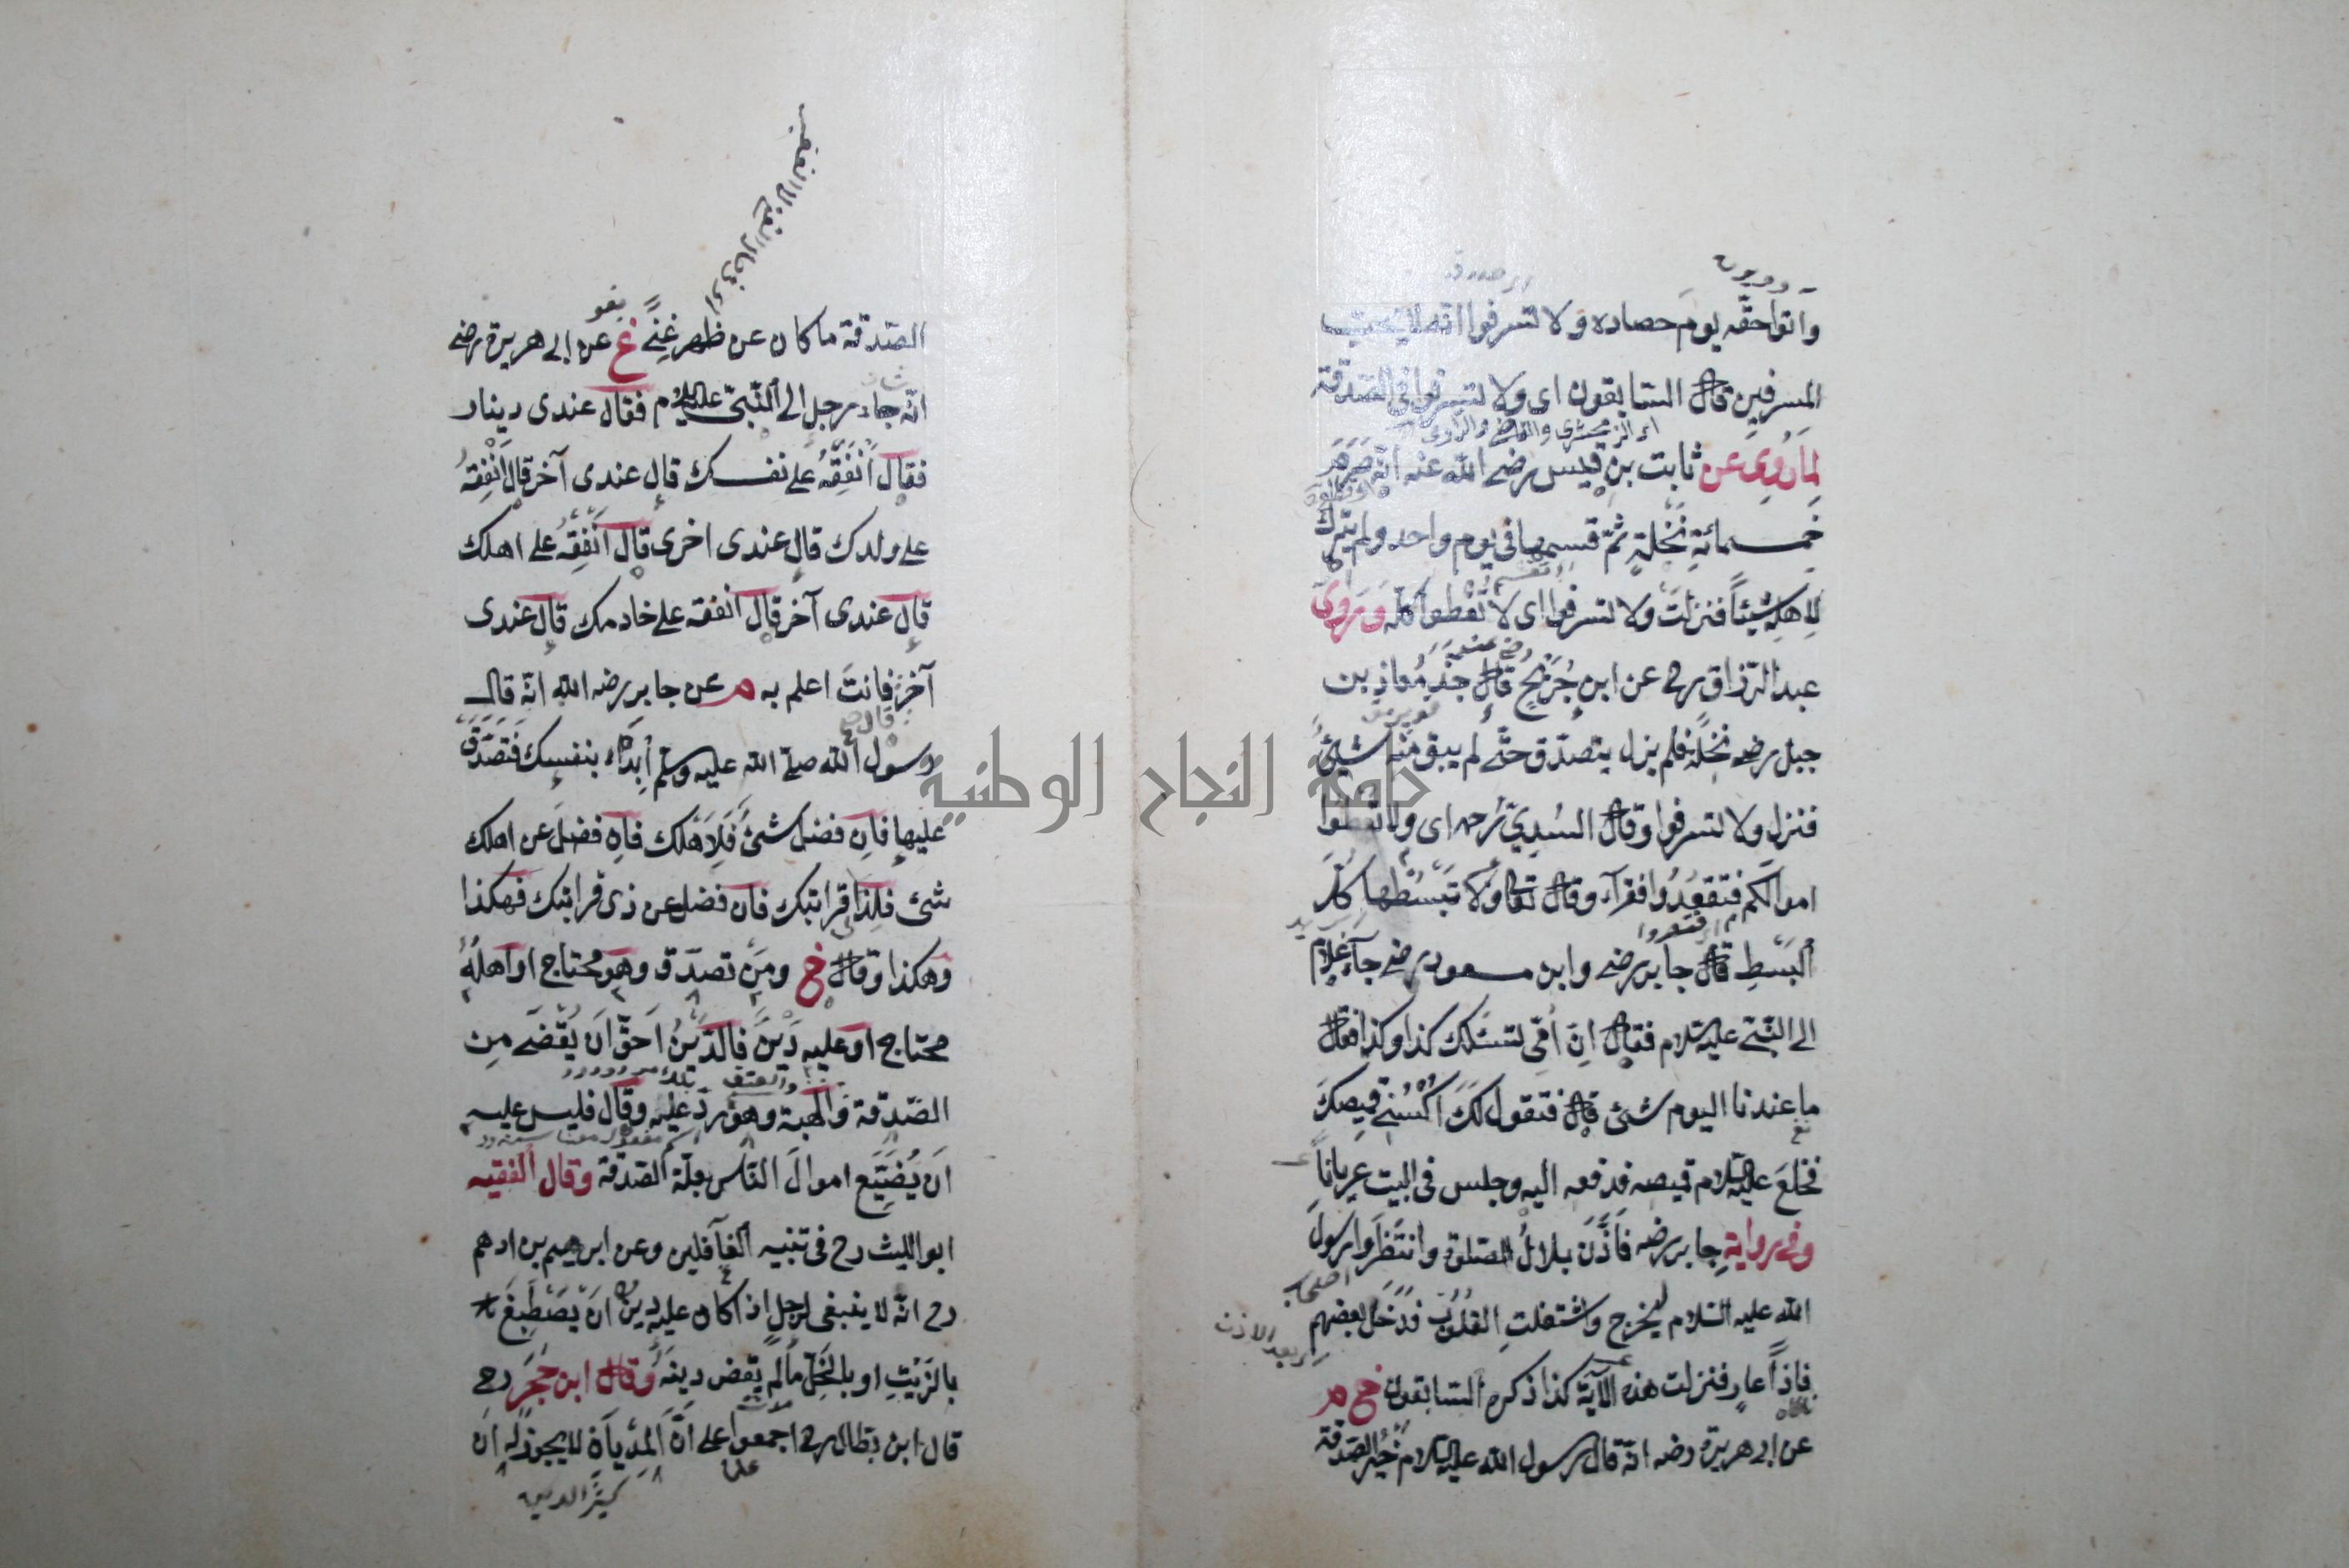 وآتوا حقّه يوم حصاده ولا تسرفوا انه لا يحب
المسرفين قال السابقون اى ولا تسرفوا فى الصّدقة
اى الزمخشرى والقاضى والرازى
لِمَا رُوِىَ عن ثابت بن قيس رضى الله عنه انّه صَرَمَ
خمسمائةِ نَخْلةٍ ثمّ قسمها فى يوم واحد ولم يترك
لاهله شيئاً فنزلت ولا تسرفوا اى لا تُعْطوا كلّه وروى
عبد الرّزاق رح عن ابن جُرَيْج قال جذ مُعاذ بن
جبل رضه نخلَه فلم يزل يتصدّق حتّى لم يبق منه شىءٌ
فنزل ولا تسرفوا وقال السُدِىّ رحمه اى ولا تُعْطُوا
اموالكم فتقعُدُوا فقرآء وقال تعا ولا تَبْسُطْها كلَّ
البَسْطِ قال جابر رضى وابن مسعود رضى جآء غلام
الى النّبىّ عليه السّلام فقال اِنّ اُمّى تسئلك كذا وكذا فقال
ما عندنا اليوم شىء قال فتقول لكَ اكْسُنِى قميصكَ
فخلعَ عليه السّلام قميصه فدفعه اليه وجلس فى البيت عرياناً
وفى روايةِ جابر رضه فاَذَّنَ بلالُ الصّلوة وانتَظَروا رسولَ
اصحاب
الله عليه السّلام ليخرج واشتغلتِ القلُوب فدَخَل بعضهم
بعد الاذن
فاذاً عارٍ فنزلت هذه الآية كذا ذكره السّابقون خ م
عن ابى هريرة رضه انّه قال رسول الله عليه السّلام خيْر الصّدقة
الصّدقة ما كان عن ظهر غِنًى غ عن ابى هريرة رضى
انّه جاء رجل الى النّبىّ عليه السّلام فقال عندى دينار
فقال اَنْفِقْهُ على نفسك قال عندى آخر قال اَنْفِقْهُ
على ولدك قال عندى اخرى قال اَنْفِقْهُ على اهلك
قال عندى آخر قال انفقه على خادمك قال عندى
آخر فانت اعلم به م عن جابر رضه الله انّه قال
قال
رسول الله صلّى الله عليه وسلّم اِبْدَاء بنفسك فَتَصَدَّقْ
عليها فاِن فضل شىءٌ فَلِاَهْلك فاِن فضَلَ عن اهلك
شىء فلِذِى قرابتك فان فضل عن ذى قرابتك فهكذا
وهكذا وقال خ ومَنْ تصدّق وهو محتاج او اهلُهُ
محتاج او عليه دَيْنٌ فالدَّيْنُ اَحَقُّ اَن يُقْضَى مِن
والعتق
الصّدقة والهبة وهو ردّ عليه وقال فليس عليه
اَن يُضَيِّع اموالَ النّاس بعلّة الصّدقة وقال الفقيه
ابو الليث رح فى تنبيه الغافلين وعن ابرهيم بن ادهم
رح انّه لا ينبغى لرجل اذا كان عليه دين اَنْ يَصْطَبِغَ
بالزّيْتِ او بالخَلّ ما لَمْ يقض دينَه وقال ابن حَجَر رح
قال ابن بطّال رح اجمعوا على اَنَّ المِدْيانَ لا يجوز له اَن
كثير الدين